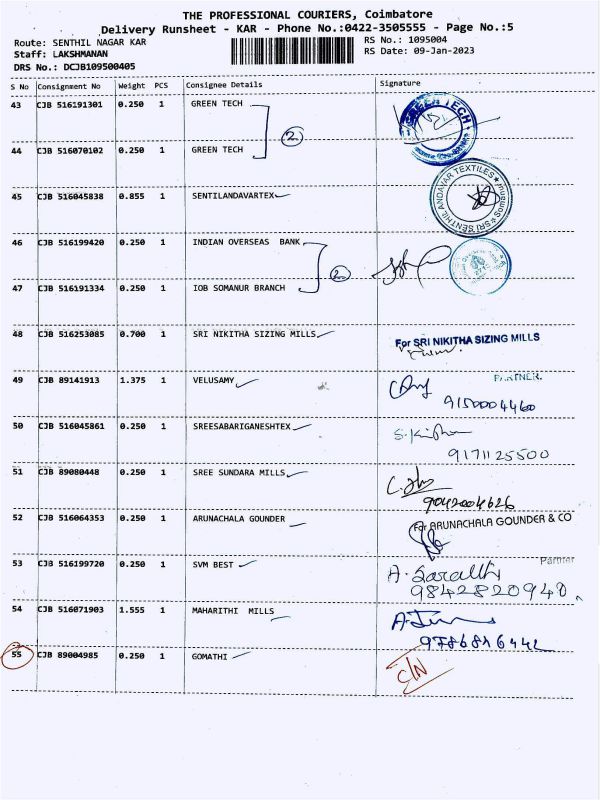 THE PROFESSIONAL COURIERS, Coimbatore
Delivery Runsheet - KAR - Phone No.:0422-3505555 - Page No.:5
Route: SENTHIL NAGAR KAR RS No.: 1095004
Staff: LAKSHMANAN RS Date: 09-Jan-2023
DRS No.: DCJB109500405
S No Consignment No Weight PCS Consignee Details Signature
43 CJB 516191301 0.250 1 GREEN TECH
GREEN TECH
2
44 CJB 516070102 0.250 1 GREEN TECH
45 CJB 516045838 0.855 1 SENTILANDAVARTEX
SRI SENTHIL ANDAVAR TEXTILES Somanur
46 CJB 516199420 0.250 1 INDIAN OVERSEAS BANK
2
47 CJB 516191334 0.250 1 IOB SOMANUR BRANCH
48 CJB 516253085 0.700 1 SRI NIKITHA SIZING MILLS
For SRI NIKITHA SIZING MILLS
PARTNER.
49 CJB 89141913 1.375 1 VELUSAMY
9150004460
50 CJB 516045861 0.250 1 SREESABARIGANESHTEX
9171125500
51 CJB 89080448 0.250 1 SREE SUNDARA MILLS
9042004626
52 CJB 516064353 0.250 1 ARUNACHALA GOUNDER
For ARUNACHALA GOUNDER & CO
Partner
53 CJB 516199720 0.250 1 SVM BEST
9842820940
54 CJB 516071903 1.555 1 MAHARITHI MILLS
9786816442
55 CJB 89004985 0.250 1 GOMATHI
C/N